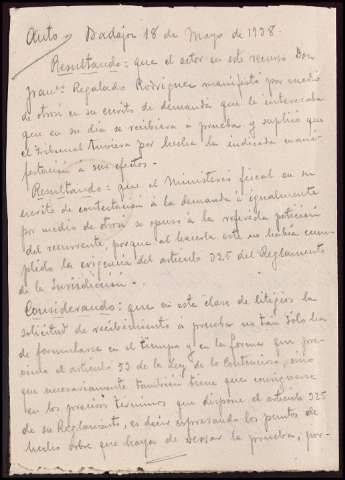 Auto. Badajoz 18 de Mayo de 1938.
Resultando: que el actor en este recurso Don
Franco. Regalado Rodriguez manifestó por medio
de otrosí en su escrito de demanda que le interesaba
que en su dia se recibiera á prueba y suplicó que
el Tribunal tuviera por hecha la indicada mani-
festación á sus efectos.
Resultando: que el Ministerio fiscal en su
escrito de contestación á la demanda é igualmente
por medio de otrosí se opuso á la referida petición
del recurrente, porque al hacerla este no había cum-
plido la exigencia del articulo 325 del Reglamento
de la Jurisdicción.
Considerando: que en esta clase de litigios la
solicitud de recibimiento á prueba no tan solo ha
de formularse en el tiempo y en la forma que pre-
el articulo 53 de la Ley de lo Contencioso, sino
que necesariamente también tiene que consignarse
en los precisos términos que dispone el articulo 325
de su Reglamento, es decir expresando los puntos de
hecho sobre que haya de versar la prueba, por-